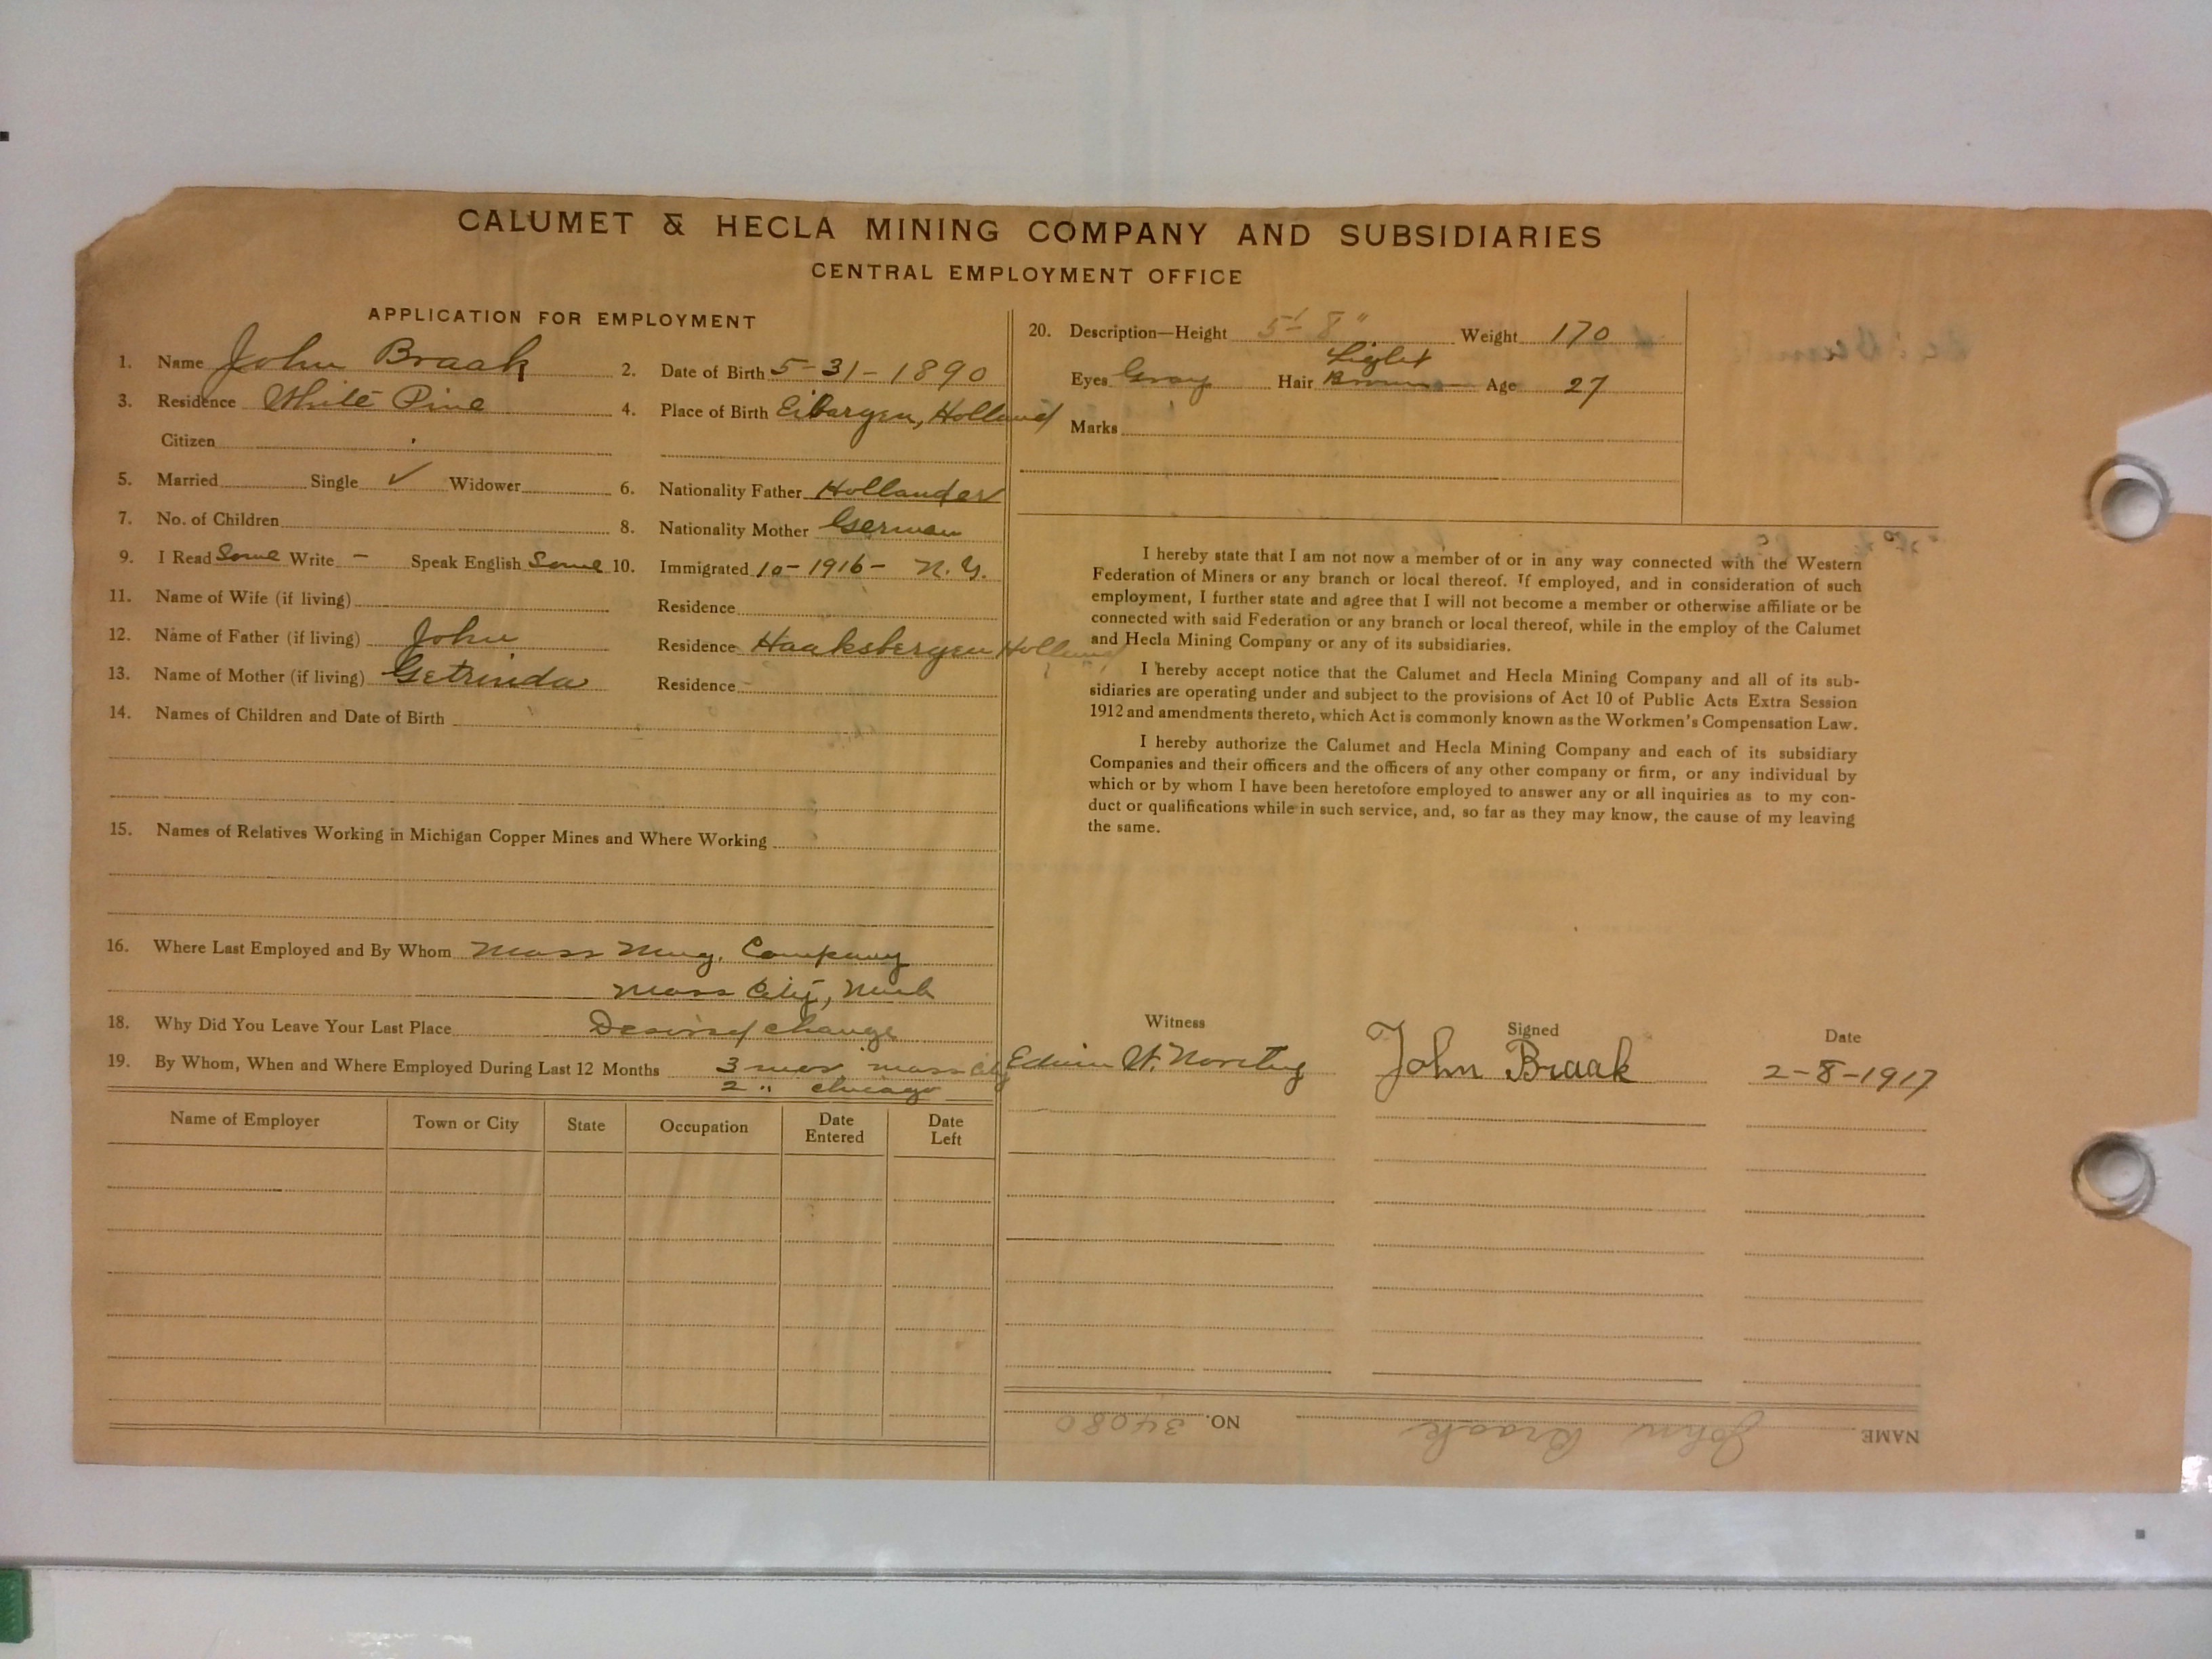 CALUMET & HECLA MINING COMPANY AND SUBSIDIARIES
CENTRAL EMPLOYMENT OFFICE
APPLICATION FOR EMPLOYMENT
1. Name John Braak 2. Date of Birth 5-31-1890
3. Residence White Pine 4. Place of Birth Eibargen, Holland
Citizen
5. Married Single ✓ Widower 6. Nationality Father Hollander
7. No. of Children 8. Nationality Mother German
9. I Read Some Write - Speak English Some 10. Immigrated 10-1916- N.Y.
11. Name of Wife (if living) Residence
12. Name of Father (if living) John Residence Haaksbergen Holland
13. Name of Mother (if living) Getrinda Residence
14. Names of Children and Date of Birth
15. Names of Relatives Working in Michigan Copper Mines and Where Working
16. Where Last Employed and By Whom Mass Mng. Company
Mass City, Mich
18. Why Did You Leave Your Last Place Desired change
19. By Whom, When and Where Employed During Last 12 Months 3 mos mass City
2 " chicago
Name of Employer Town or City State Occupation Date Entered Date Left
20. Description—Height 5'-8" Weight 170
Light
Eyes Gray Hair Brown Age 27
Marks
I hereby state that I am not now a member of or in any way connected with the Western
Federation of Miners or any branch or local thereof. If employed, and in consideration of such
employment, I further state and agree that I will not become a member or otherwise affiliate or be
connected with said Federation or any branch or local thereof, while in the employ of the Calumet
and Hecla Mining Company or any of its subsidiaries.
I hereby accept notice that the Calumet and Hecla Mining Company and all of its sub-
sidiaries are operating under and subject to the provisions of Act 10 of Public Acts Extra Session
1912 and amendments thereto, which Act is commonly known as the Workmen's Compensation Law.
I hereby authorize the Calumet and Hecla Mining Company and each of its subsidiary
Companies and their officers and the officers of any other company or firm, or any individual by
which or by whom I have been heretofore employed to answer any or all inquiries as to my con-
duct or qualifications while in such service, and, so far as they may know, the cause of my leaving
the same.
Witness Signed Date
Edwin W. John Braak 2-8-1917
NAME John Braak NO. 34080